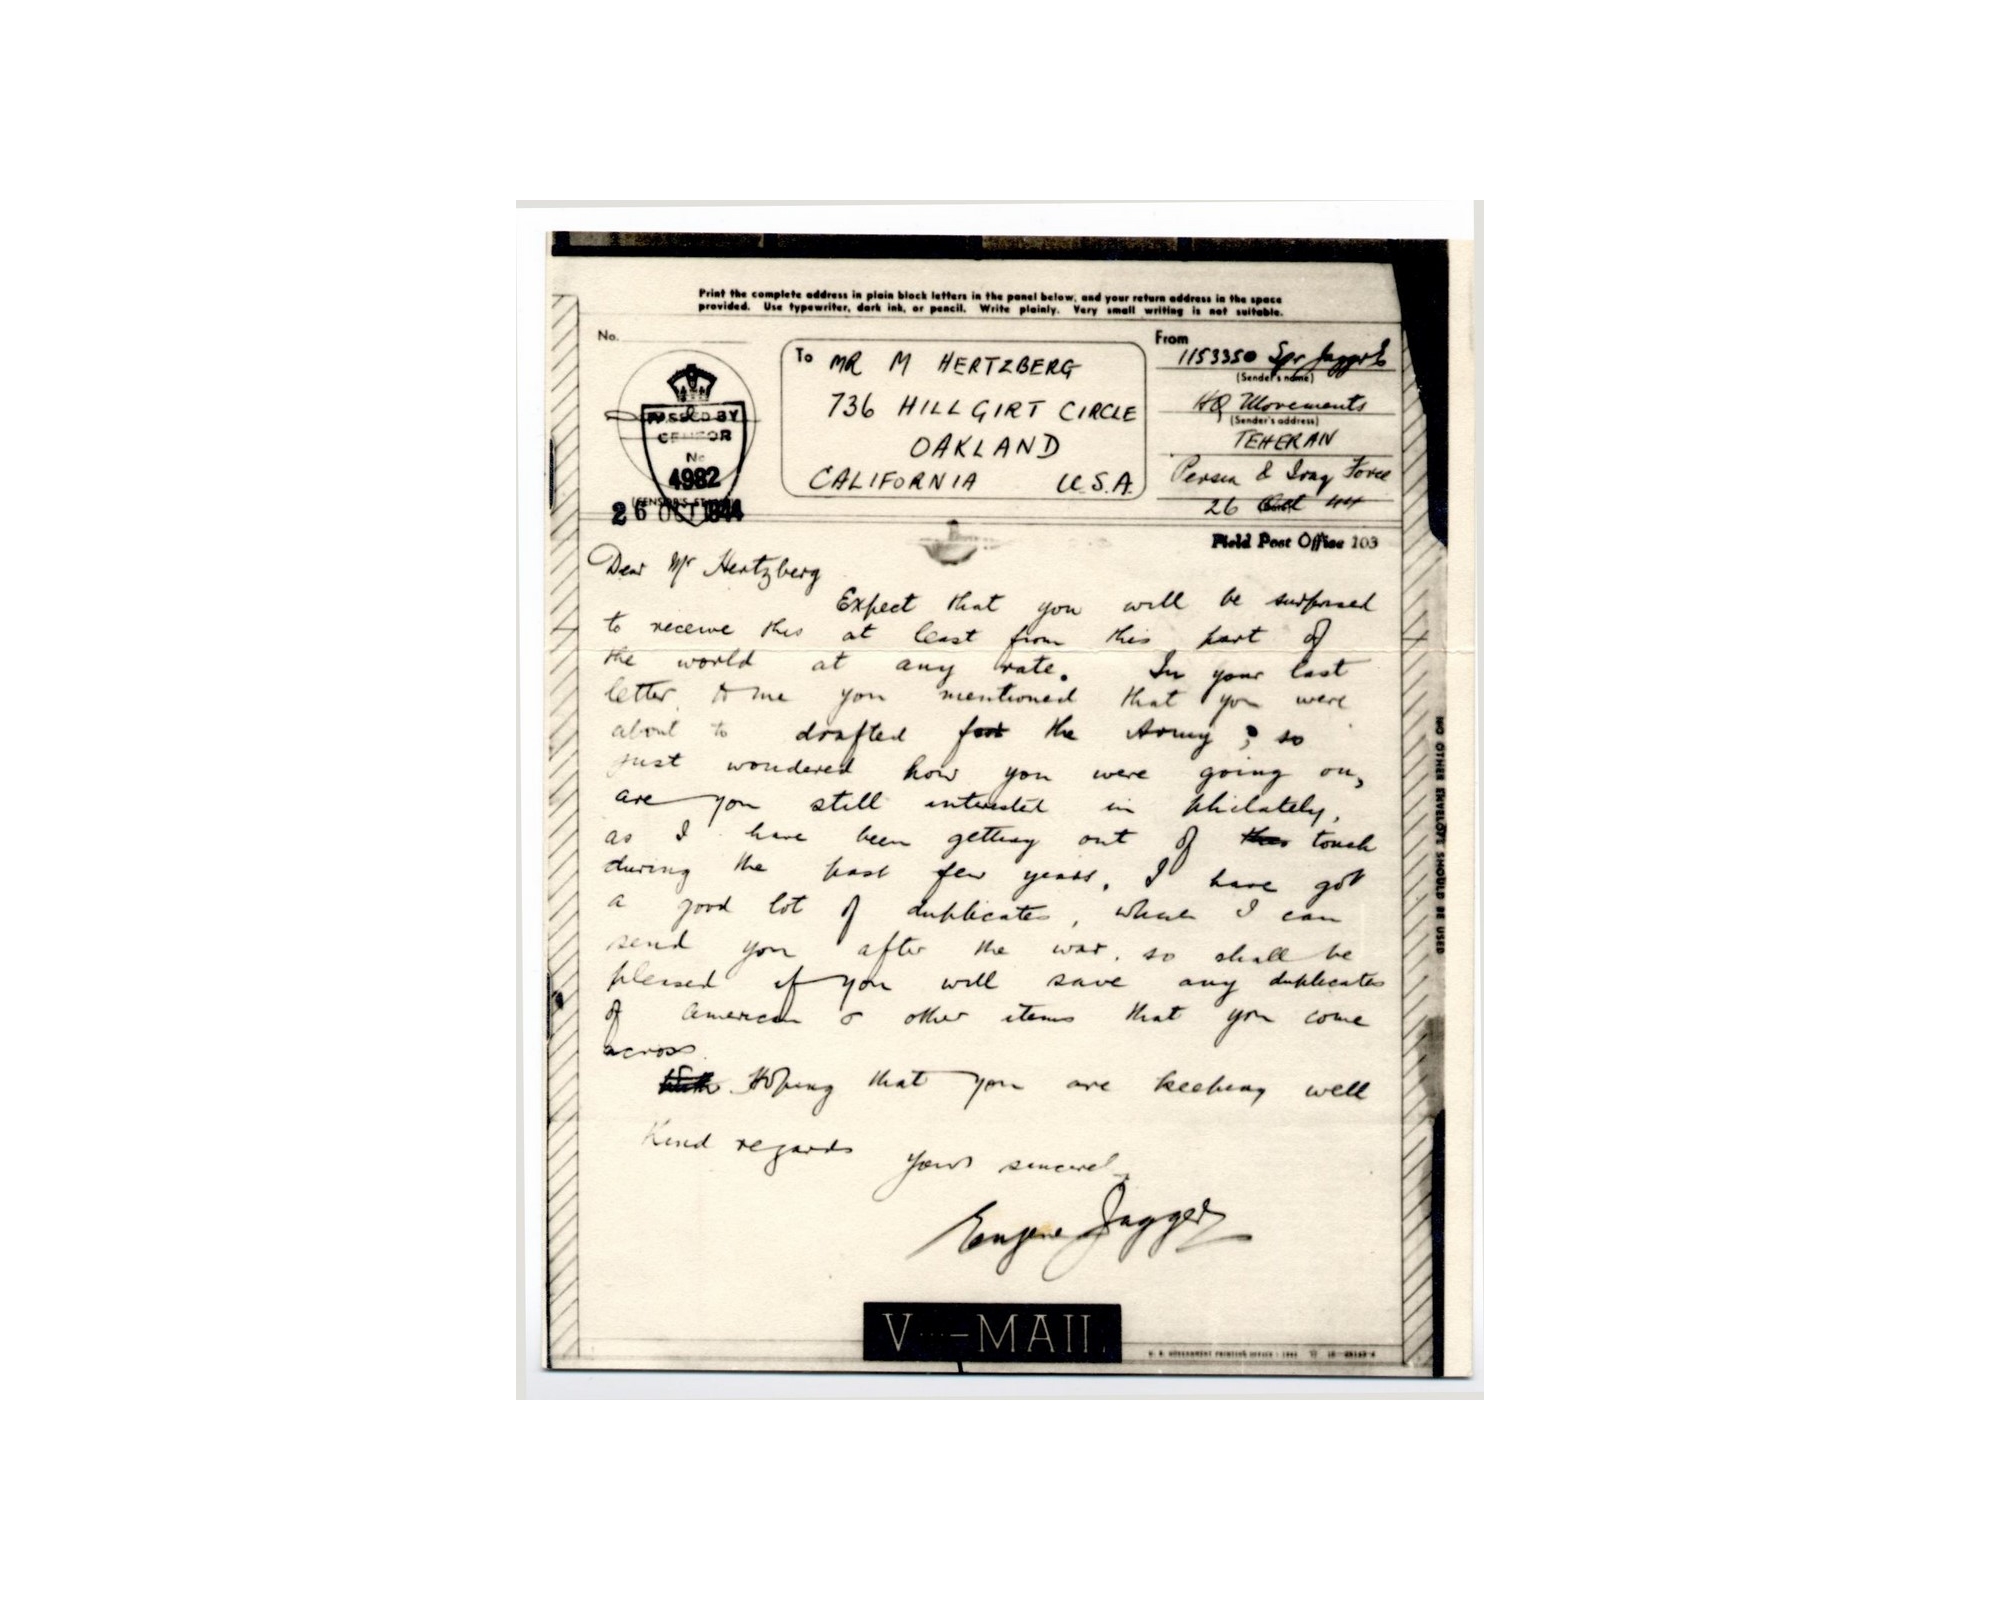 Print the complete address in plain block letters in the panel below, and your return address in the space
provided. Use typewriter, dark ink, or pencil. Write plainly. Very small writing is not suitable.
No.
PASSED BY
CENSOR
No
4982
(CENSOR'S STAMP)
26 OCT 1944
To MR M HERTZBERG
736 HILLGIRT CIRCLE
OAKLAND
CALIFORNIA U.S.A.
From
1153350 Spr Jagger E
(Sender's name)
HQ Movements
(Sender's address)
TEHERAN
Persia & Iraq Force
26 Oct 44
Field Post Office 103
Dear Mr Hertzberg
Expect that you will be surprised
to receive this at least from this part of
the world at any rate. In your last
letter to me you mentioned that you were
about to drafted for the Army ; so
just wondered how you were going on,
are you still interested in philately,
as I have been getting out of touch
during the past few years. I have got
a good lot of duplicates, which I can
send you after the war, so shall be
pleased if you will save any duplicates
of American & other items that you come
across.
Hoping that you are keeping well
Kind regards
Yours sincerely
Eugene Jagger
V···-MAIL
U. S. GOVERNMENT PRINTING OFFICE : 
NO OTHER ENVELOPE SHOULD BE USED